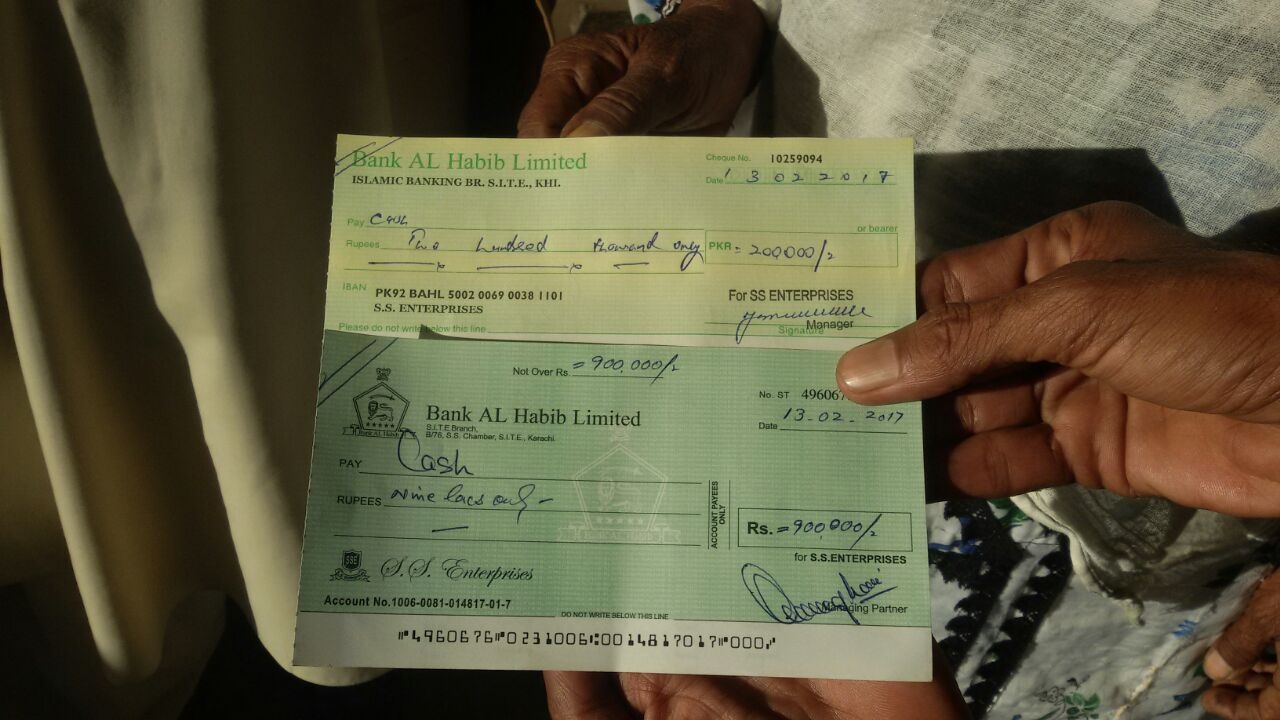 Bank AL Habib Limited
ISLAMIC BANKING BR. S.I.T.E., KHI.
Cheque No. 10259094
Date 1 3 0 2 2 0 1 7
Pay Cash
or bearer
Rupees Two Hundred Thousand only
PKR = 200,000/=
IBAN PK92 BAHL 5002 0069 0038 1101
S.S. ENTERPRISES
For SS ENTERPRISES
Manager
Signature
Please do not write below this line
Not Over Rs. = 900,000/=
No. ST 49606
Bank AL Habib
Bank AL Habib Limited
S.I.T.E Branch,
B/76, S.S. Chamber, S.I.T.E., Karachi.
Date 13-02-2017
PAY Cash
RUPEES Nine lacs only -
ACCOUNT PAYEES ONLY
Rs. = 900,000/=
for S.S.ENTERPRISES
SSE
S.S. Enterprises
Managing Partner
Account No.1006-0081-014817-01-7
DO NOT WRITE BELOW THIS LINE
⑈4960676⑈0231006⑆0014817017⑈000⑇